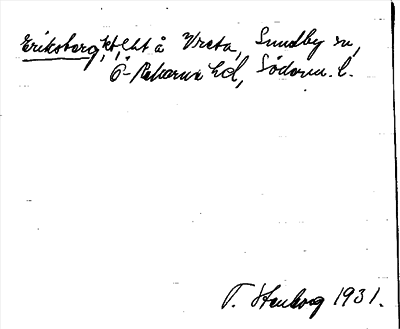 Eriksberg, kt, lht å Vreta, Sundby sn,
Ö-Rekarne hd, Söderm. l.
T. Stenberg 1931.